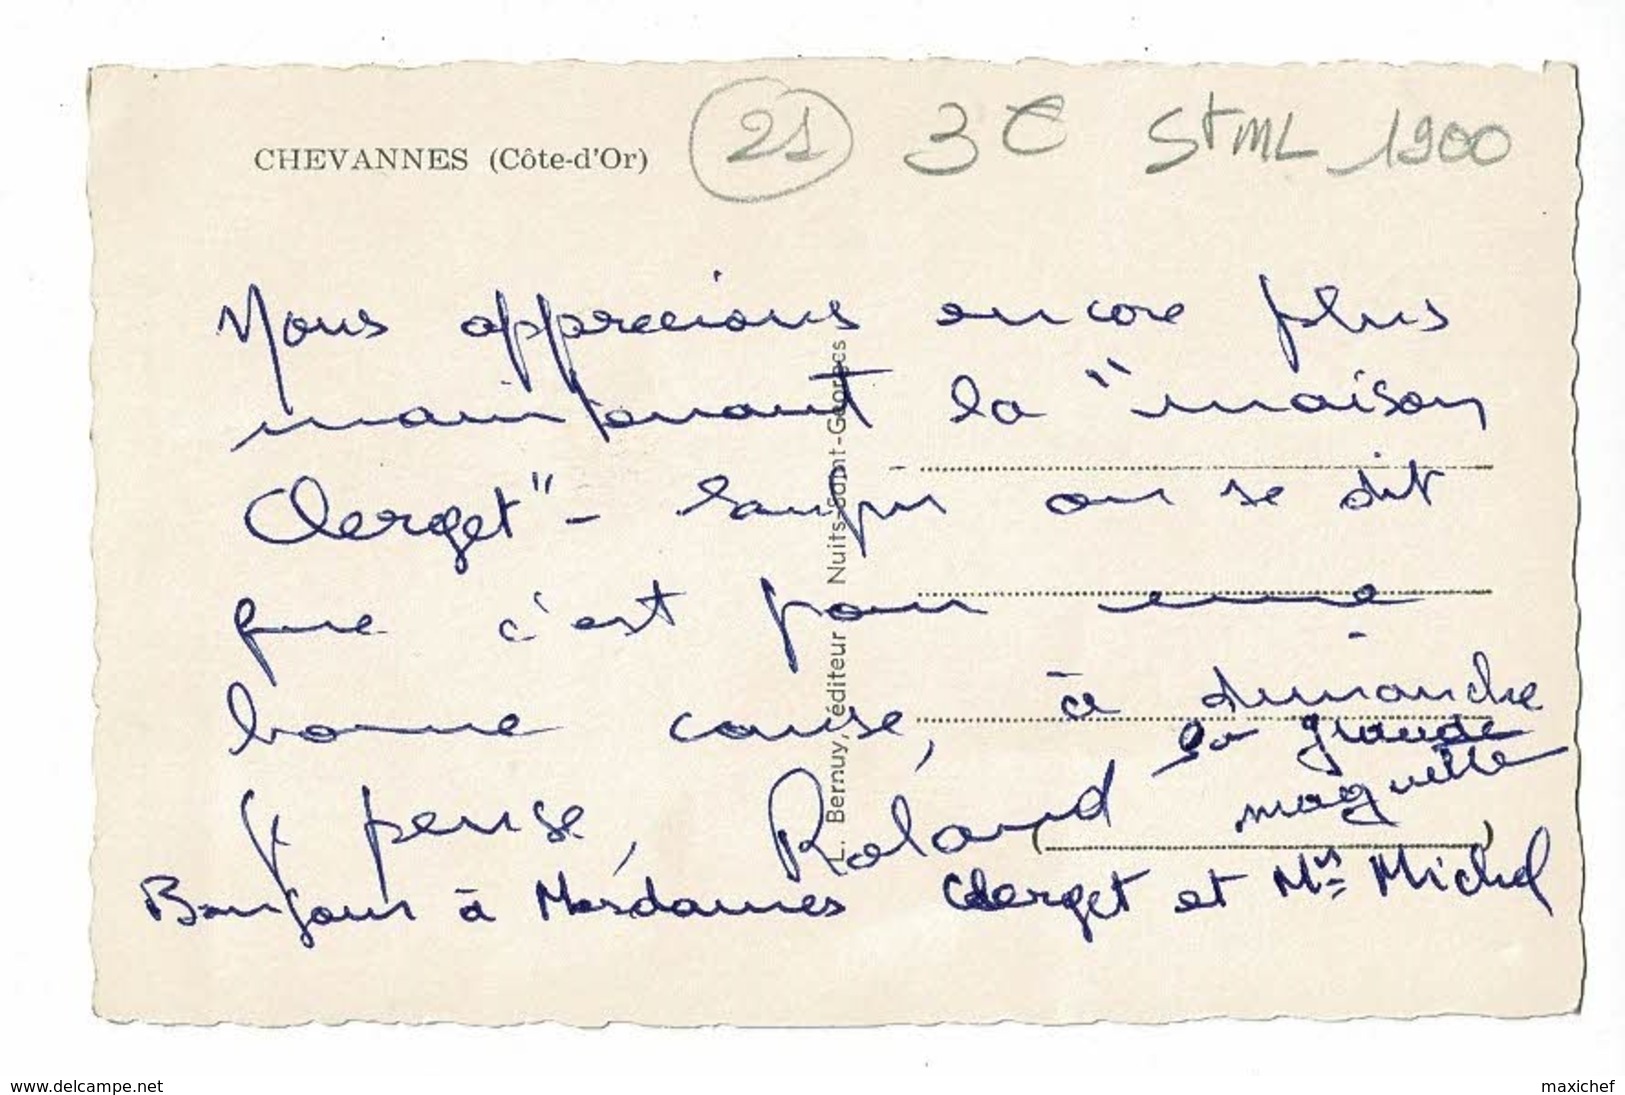 CHEVANNES (Côte-d'Or)
21 3€ St ML 1900
Nous apprecions encore plus
maintenant la "maison
Clerget" - on se dit
que c'est pour une
bonne cause, à dimanche
je pense, Roland la grande
maquette
Bonjour à Mesdames Clerget et Mrs Michel
L. Bernuy, éditeur Nuits-Saint-Georges
www.delcampe.net
maxichef